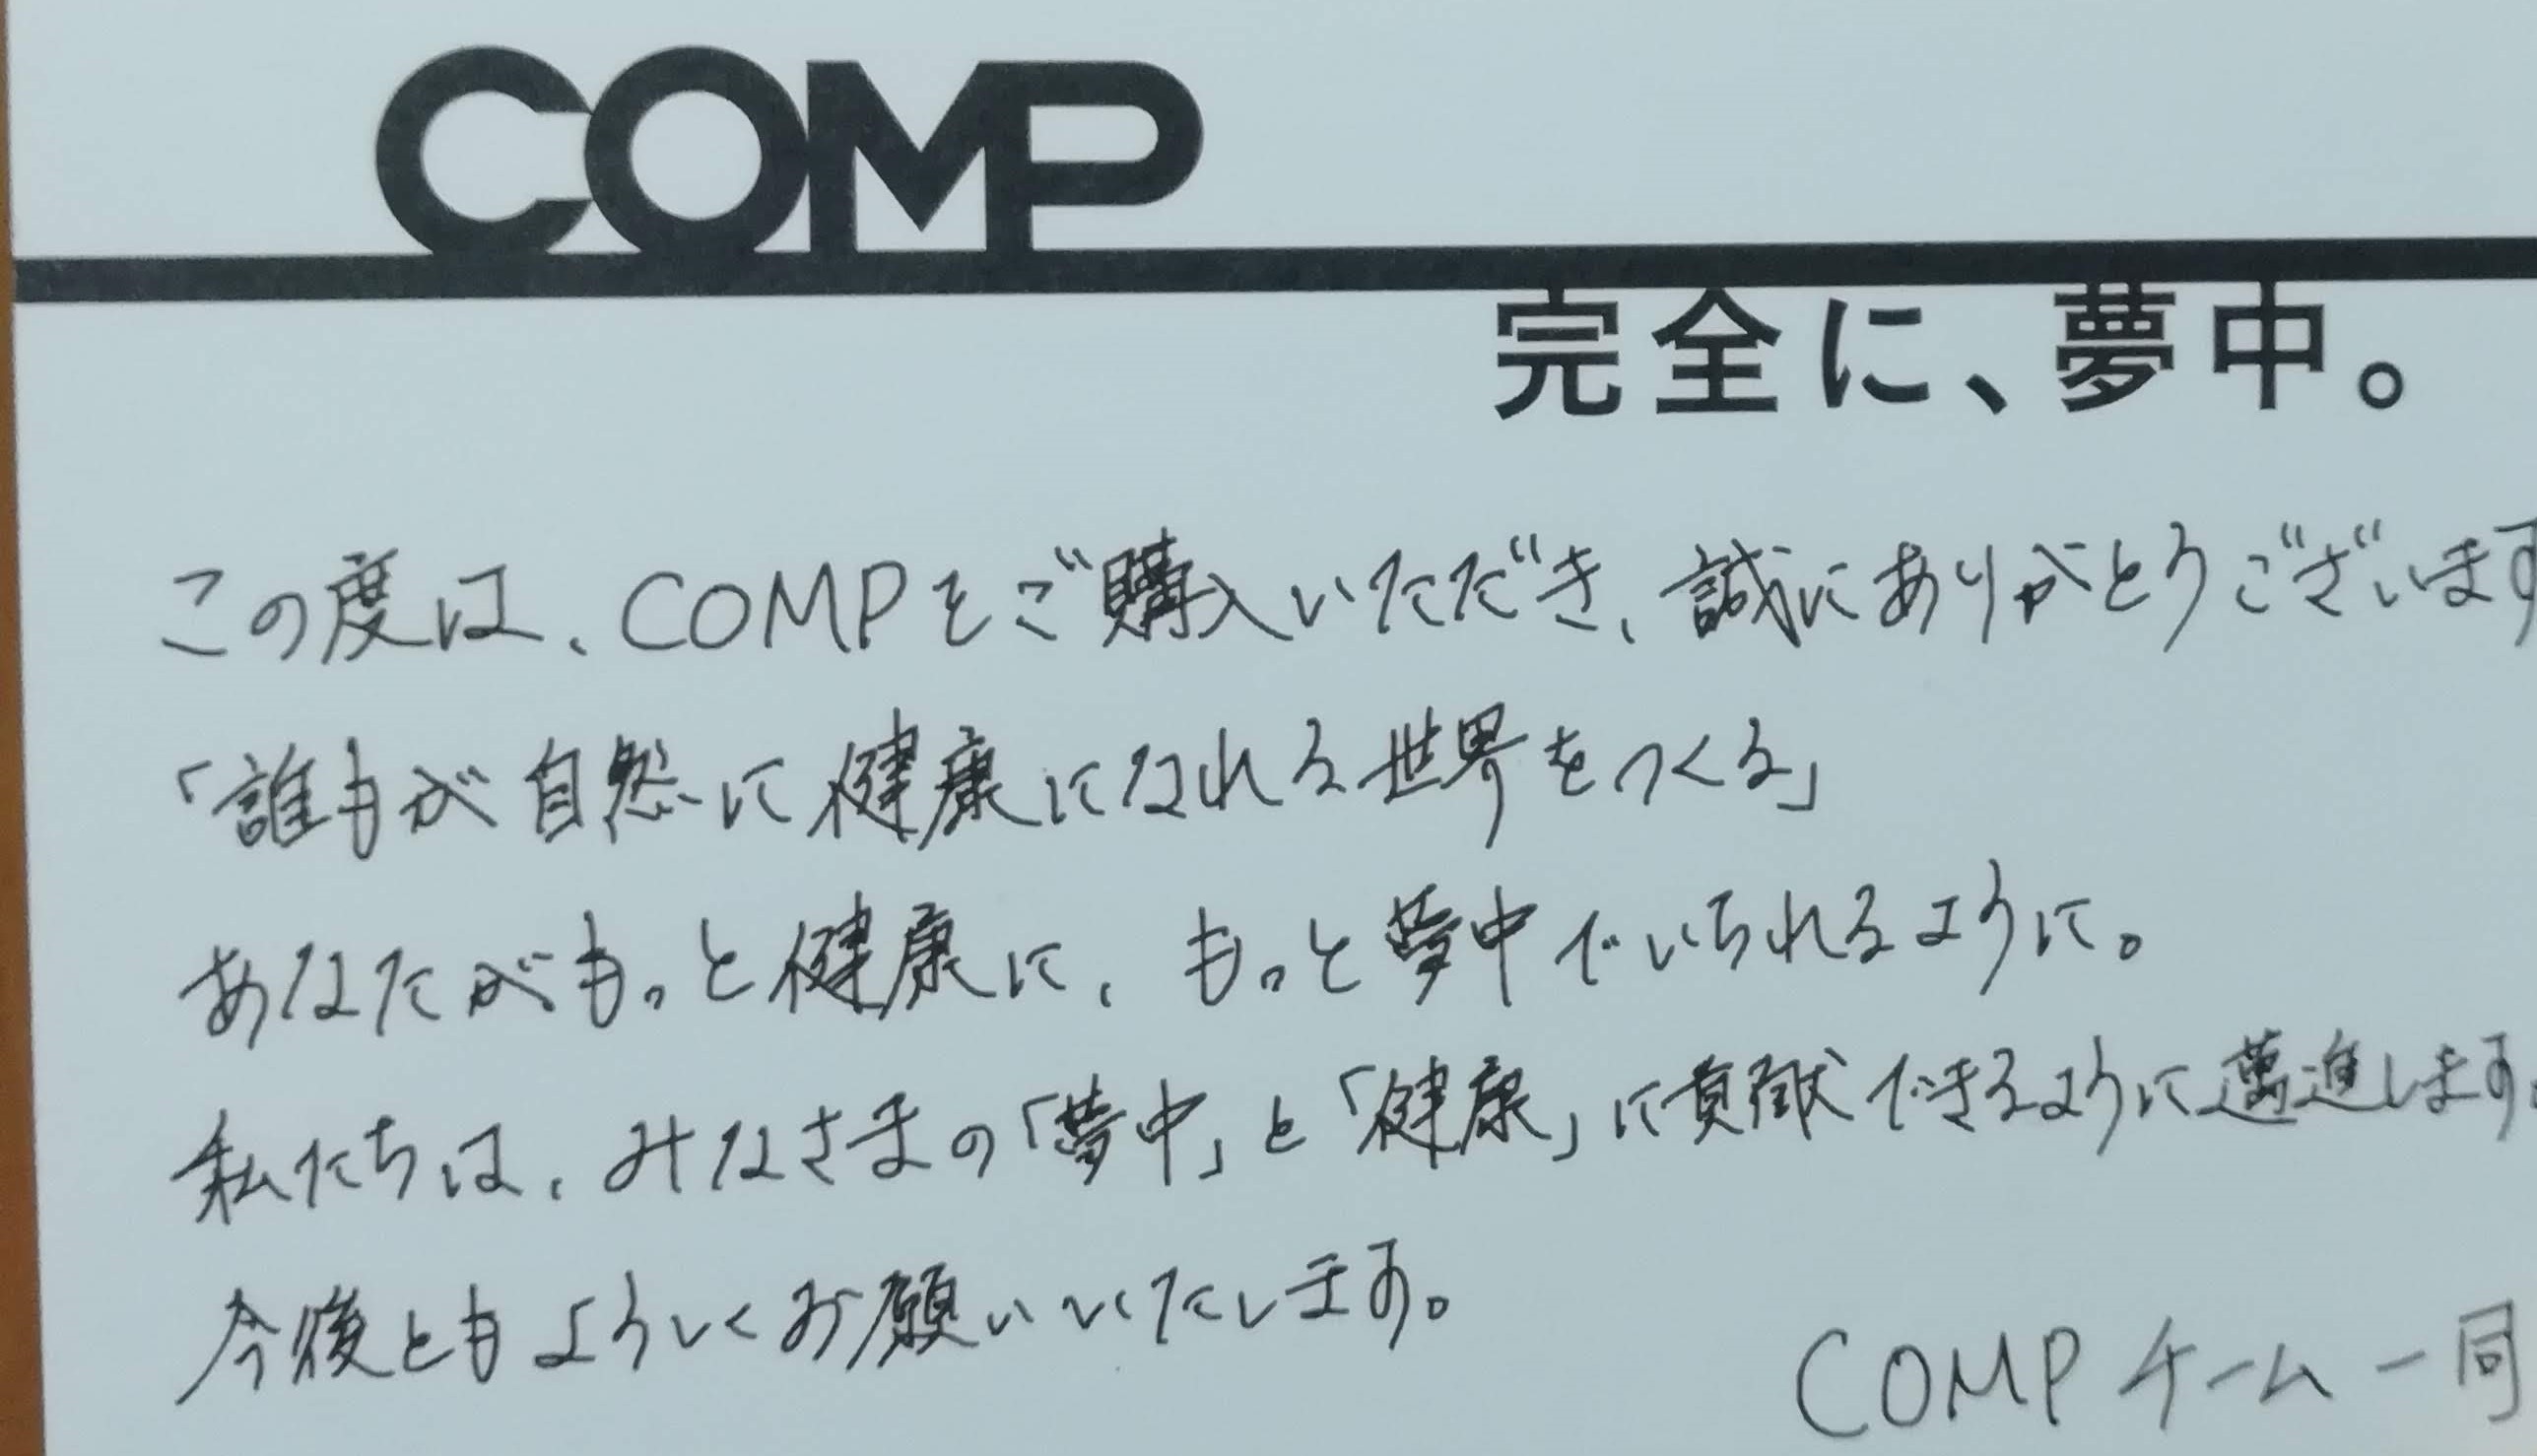 COMP
完全に、夢中。
この度は、COMPをご購入いただき、誠にありがとうございます
「誰もが自然に健康になれる世界をつくる」
あなたがもっと健康に、もっと夢中でいられるように。
私たちは、みなさまの「夢中」と「健康」に貢献できるように邁進します。
今後ともよろしくお願いいたします。
COMPチーム一同